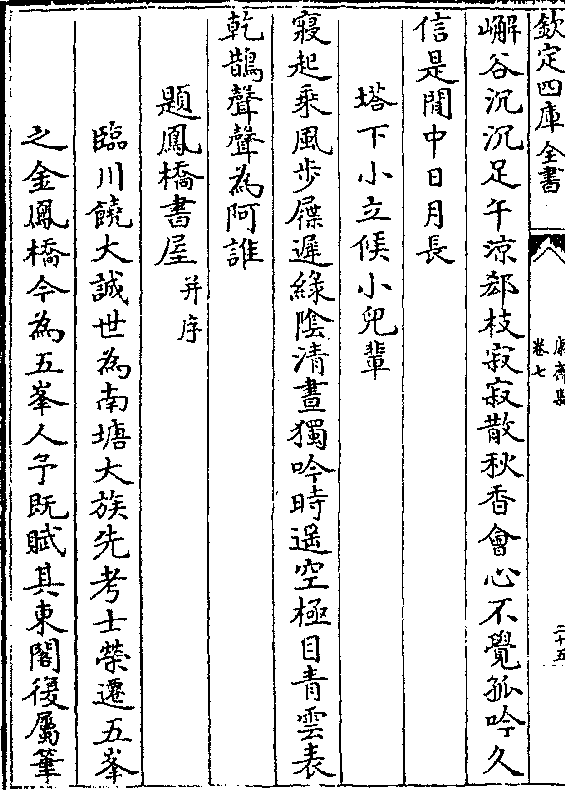 欽定四庫全書
康齋集
卷七
二十五
嶰谷沉沉足午涼郄枝寂寂散秋香會心不覺孤吟久
信是閒中日月長
塔下小立候小兒輩
寢起乘風步屧遲綠陰清晝獨吟時遥空極目青雲表
乾鵲聲聲為阿誰
題鳳橋書屋并序
臨川饒大誠世為南塘大族先考士榮遷五峯
之金鳳橋今為五峯人予既賦其東閣復屬筆